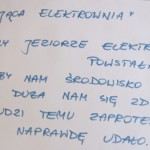 JĄCA ELEKTROWNIA"
Y JEZIORZE ELEKTR
POWSTAŁ
BY NAM ŚRODOWISKO
DUŻA NAM SIĘ ZD
UDZI TEMU ZAPROTE
NAPRAWDĘ UDAŁO.